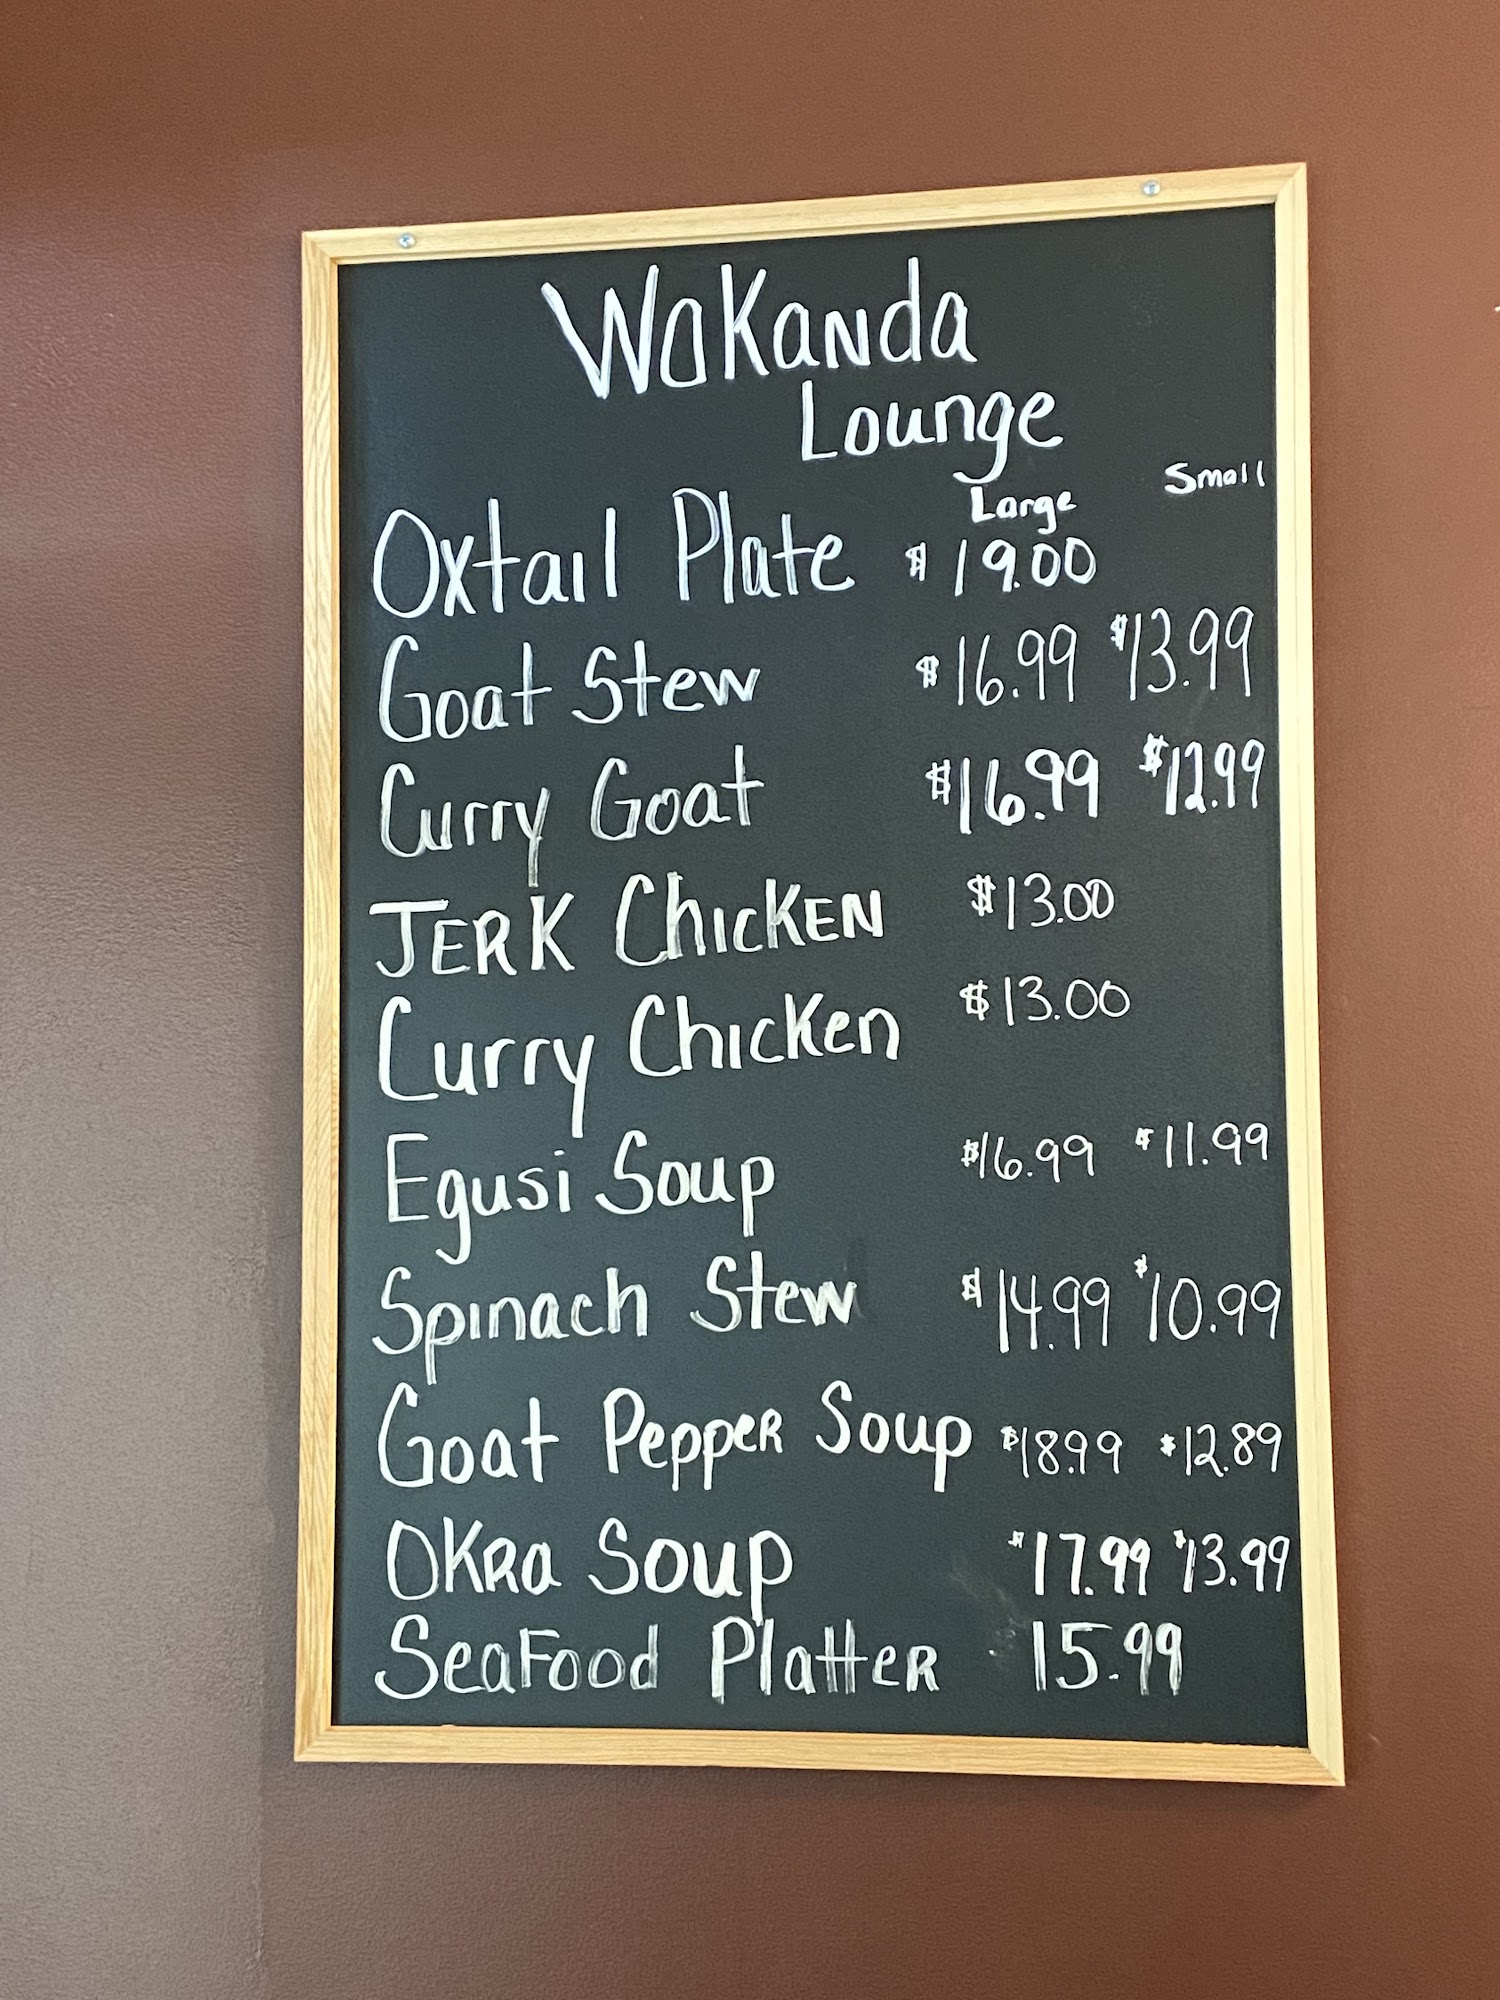 Wakanda
Lounge
Large Small
Oxtail Plate $19.00
Goat Stew $16.99 $13.99
Curry Goat $16.99 $12.99
JERK ChicKEN $13.00
Curry Chicken $13.00
Egusi Soup $16.99 $11.99
Spinach Stew $14.99 $10.99
Goat Pepper Soup $18.99 $12.89
OKRa Soup $17.99 $13.99
SeaFood PlatteR 15.99